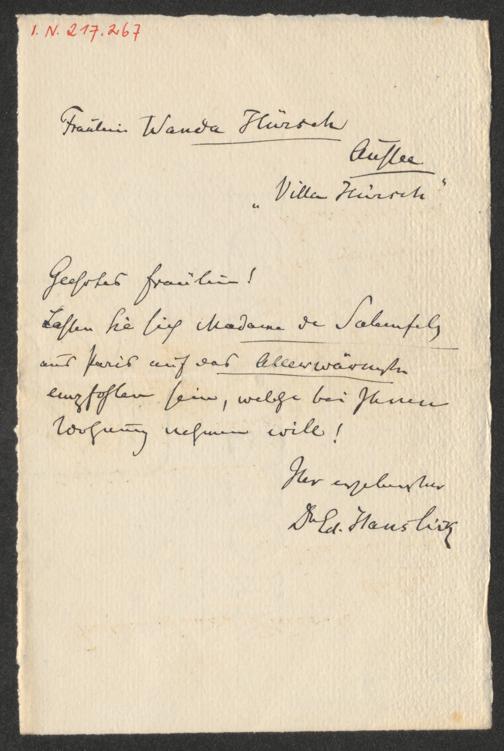 I. N. 217.267
Fräulein Wanda Hürsch
Aussee
„Villa Hürsch"
Geehrtes Fräulein!
Lassen Sie sich Madame de Salemfels
aus Paris auf das Allerwärmste
empfohlen sein, welche bei Ihnen
Wohnung nehmen will!
Ihr ergebenster
Dr Ed. Hanslick